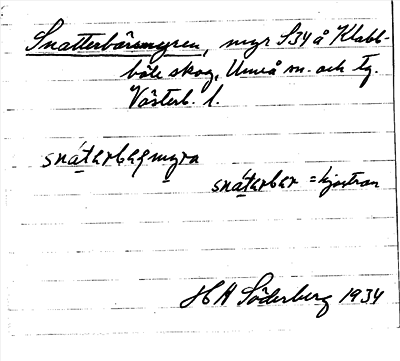 Snatterbärsmyren, myr S34 å Klabb-
böle skog, Umeå sn. och tg.
Västerb. l.
snátarbæṛmyra
snátarbær = hjortron
H A Söderberg 1934